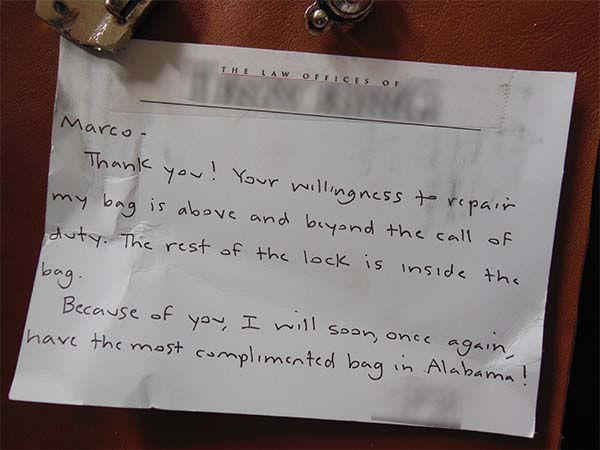 THE LAW OFFICES OF
Marco -
Thank you! Your willingness to repair
my bag is above and beyond the call of
duty. The rest of the lock is inside the
bag.
Because of you, I will soon, once again,
have the most complimented bag in Alabama!